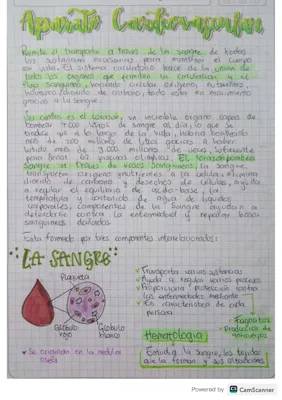 Aparato Cardiovascular
Permite el transporte a través de la sangre de todas
las sustancias necesarias para mantener el cuerpo
con vida. El sistema circulatorio
todos los órganos que permiten la circulación y el
flujo sanguíneo, haciendo circular oxígeno, nutrientes,
dióxido de carbono, todo esto en movimiento
gracias a la sangre
Su centro es el corazón, un increíble órgano capaz de
bombear 7000 litros de sangre al día, lo que se
traduce que a lo largo de la vida,
más de 200 millones de litros gracias a haber
latido más de 3.000 millones de veces,
para llenar los
El corazón bombea
sangre a través de vasos sanguíneos. La sangre
transporta oxígeno y nutrientes a la células, elimina
dióxido de carbono y desechos de células, ayuda
a regular el equilibrio de ácido-base, la
temperatura y contenido de agua de líquidos
corporales, componentes de la sangre ayudan a
defenderte contra la enfermedad y reparar vasos
sanguíneos dañados
Esta formado por tres componentes interrelacionados:
LA SANGRE
Plaqueta
Glóbulo
rojo
Glóbulo
blanco
Se originan en la médula
ósea
Transporta varias sustancias
Ayuda a regular varios procesos
Proporciona protección contra
las enfermedades mediante
Es característica de cada
persona
Fagocitos
Producción de
anticuerpos
Hematología
Estudia la sangre, los tejidos
que la forman y sus alteraciones
Powered by CamScanner